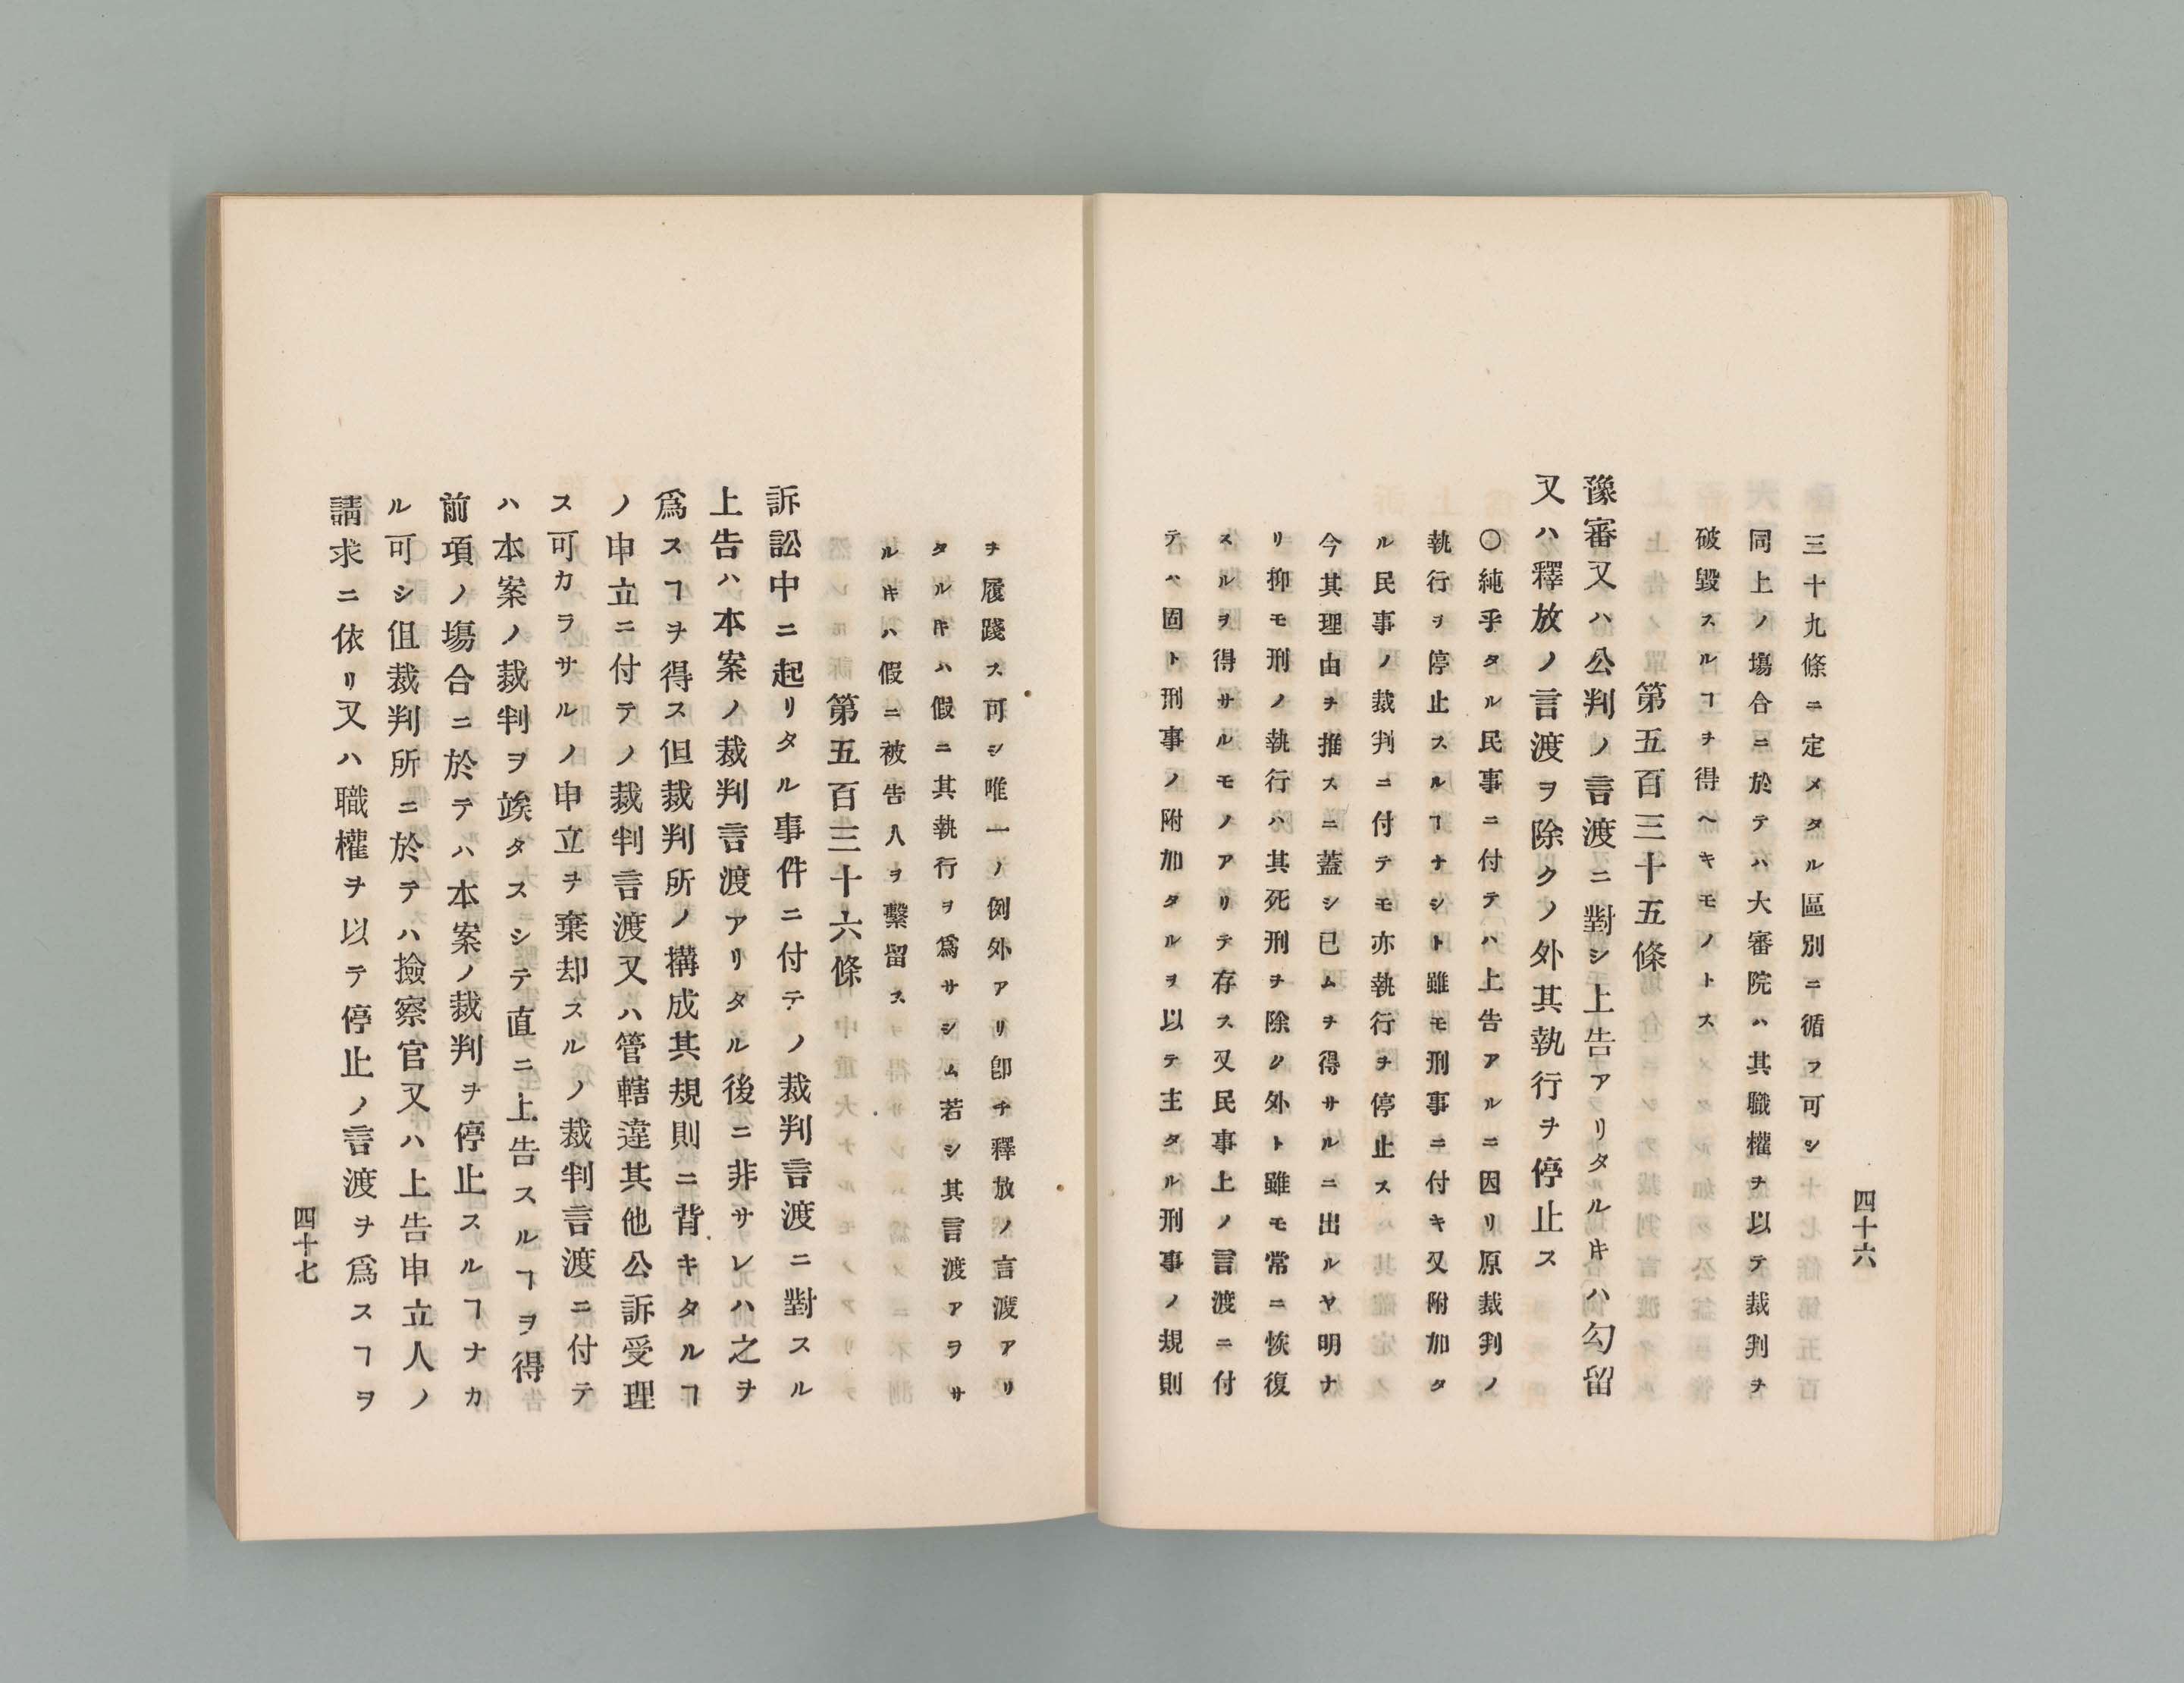 四十六
三十九條ニ定メタル區別ニ循フ可シ
同上ノ塲合ニ於テハ大審院ハ其職權ヲ以テ裁判ヲ
破毀スルヿヲ得ヘキモノトス
第五百三十五條
豫審又ハ公判ノ言渡ニ對シ上告アリタル𪜈ハ勾留
又ハ釋放ノ言渡ヲ除クノ外其執行ヲ停止ス
〇純乎タル民事ニ付テハ上告アルニ因リ原裁判ノ
執行ヲ停止スルヿナシト雖モ刑事ニ付キ又附加タ
ル民事ノ裁判ニ付テモ亦執行ヲ停止ス
今其理由ヲ推スニ蓋シ已ムヲ得サルニ出ルヤ明ナ
リ抑モ刑ノ執行ハ其死刑ヲ除ク外ト雖モ常ニ恢復
スルヲ得サルモノアリテ存ス又民事上ノ言渡ニ付
テハ固ト刑事ノ附加タルヲ以テ主タル刑事ノ規則
ヲ履踐ス可シ唯一ノ例外アリ卽チ釋放ノ言渡アリ
タルキハ假ニ其執行ヲ爲サシム若シ其言渡アラサ
ルキハ假ニ被告人ヲ繫留ス
第五百三十六條
訴訟中ニ起リタル事件ニ付テノ裁判言渡ニ對スル
上告ハ本案ノ裁判言渡アリタル後ニ非サレハ之ヲ
爲スヿヲ得ス但裁判所ノ搆成其規則ニ背キタルヿ
ノ申立ニ付テノ裁判言渡又ハ管轄違其他公訴受理
ス可カラサルノ申立ヲ棄却スルノ裁判言渡ニ付テ
ハ本案ノ裁判ヲ竢タスシテ直ニ上告スルヿヲ得
前項ノ塲合ニ於テハ本案ノ裁判ヲ停止スルヿナカ
ル可シ伹裁判所ニ於テハ撿察官又ハ上告申立人ノ
請求ニ依リ又ハ職權ヲ以テ停止ノ言渡ヲ爲スヿヲ
四十七